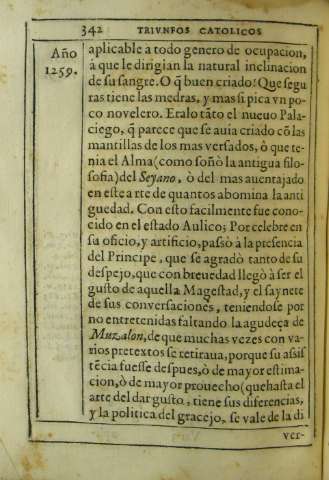 342 TRIVNFOS CATOLICOS
Año
1259.
aplicable a todo genero de ocupacion,
à que le dirigian la natural inclinacion
de su sangre. O q̃ buen criado! Que segu
ras tiene las medras, y mas si pica vn po-
co novelero. Eralo tãto el nueuo Pala-
ciego, q̃ parece que se auia criado cõ las
mantillas de los mas versados, ò que te-
nia el Alma (como soñò la antigua filo-
sofia) del Seyano, ò del mas auentajado
en este arte de quantos abomina la anti
guedad. Con esto facilmente fue cono-
cido en el estado Aulico; Por celebre en
su oficio, y artificio, passò à la presencia
del Principe, que se agradò tanto de su
despejo, que con breuedad llegò à ser el
gusto de aquella Magestad, y el saynete
de sus conversaciones, teniendose por
no entretenidas faltando la agudeça de
Muzalon, de que muchas vezes con va-
rios pretextos se retiraua, porque su asis
tẽcia fuesse despues, ò de mayor estima-
cion, ò de mayor prouecho (que hasta el
arte del dar gusto, tiene sus diferencias,
y la politica del gracejo, se vale de la di
ver-